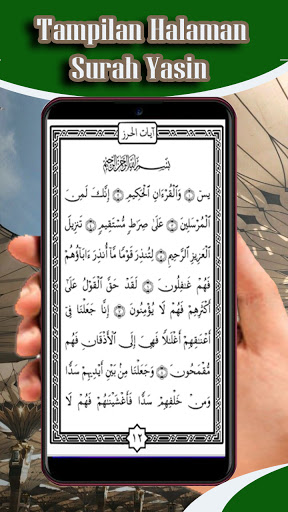 Tampilan Halaman
Surah Yasin
آيات الحرز
بِسْمِ اللَّهِ الرَّحْمَٰنِ الرَّحِيمِ
يسٓ ۝ وَالْقُرْءَانِ الْحَكِيمِ ۝ إِنَّكَ لَمِنَ
الْمُرْسَلِينَ ۝ عَلَىٰ صِرَٰطٍ مُّسْتَقِيمٍ ۝ تَنزِيلَ
الْعَزِيزِ الرَّحِيمِ ۝ لِتُنذِرَ قَوْمًا مَّآ أُنذِرَ ءَابَآؤُهُمْ
فَهُمْ غَٰفِلُونَ ۝ لَقَدْ حَقَّ الْقَوْلُ عَلَىٰٓ
أَكْثَرِهِمْ فَهُمْ لَا يُؤْمِنُونَ ۝ إِنَّا جَعَلْنَا فِىٓ
أَعْنَٰقِهِمْ أَغْلَٰلًا فَهِىَ إِلَى الْأَذْقَانِ فَهُم
مُّقْمَحُونَ ۝ وَجَعَلْنَا مِنۢ بَيْنِ أَيْدِيهِمْ سَدًّا
وَمِنْ خَلْفِهِمْ سَدًّا فَأَغْشَيْنَٰهُمْ فَهُمْ لَا
١٢